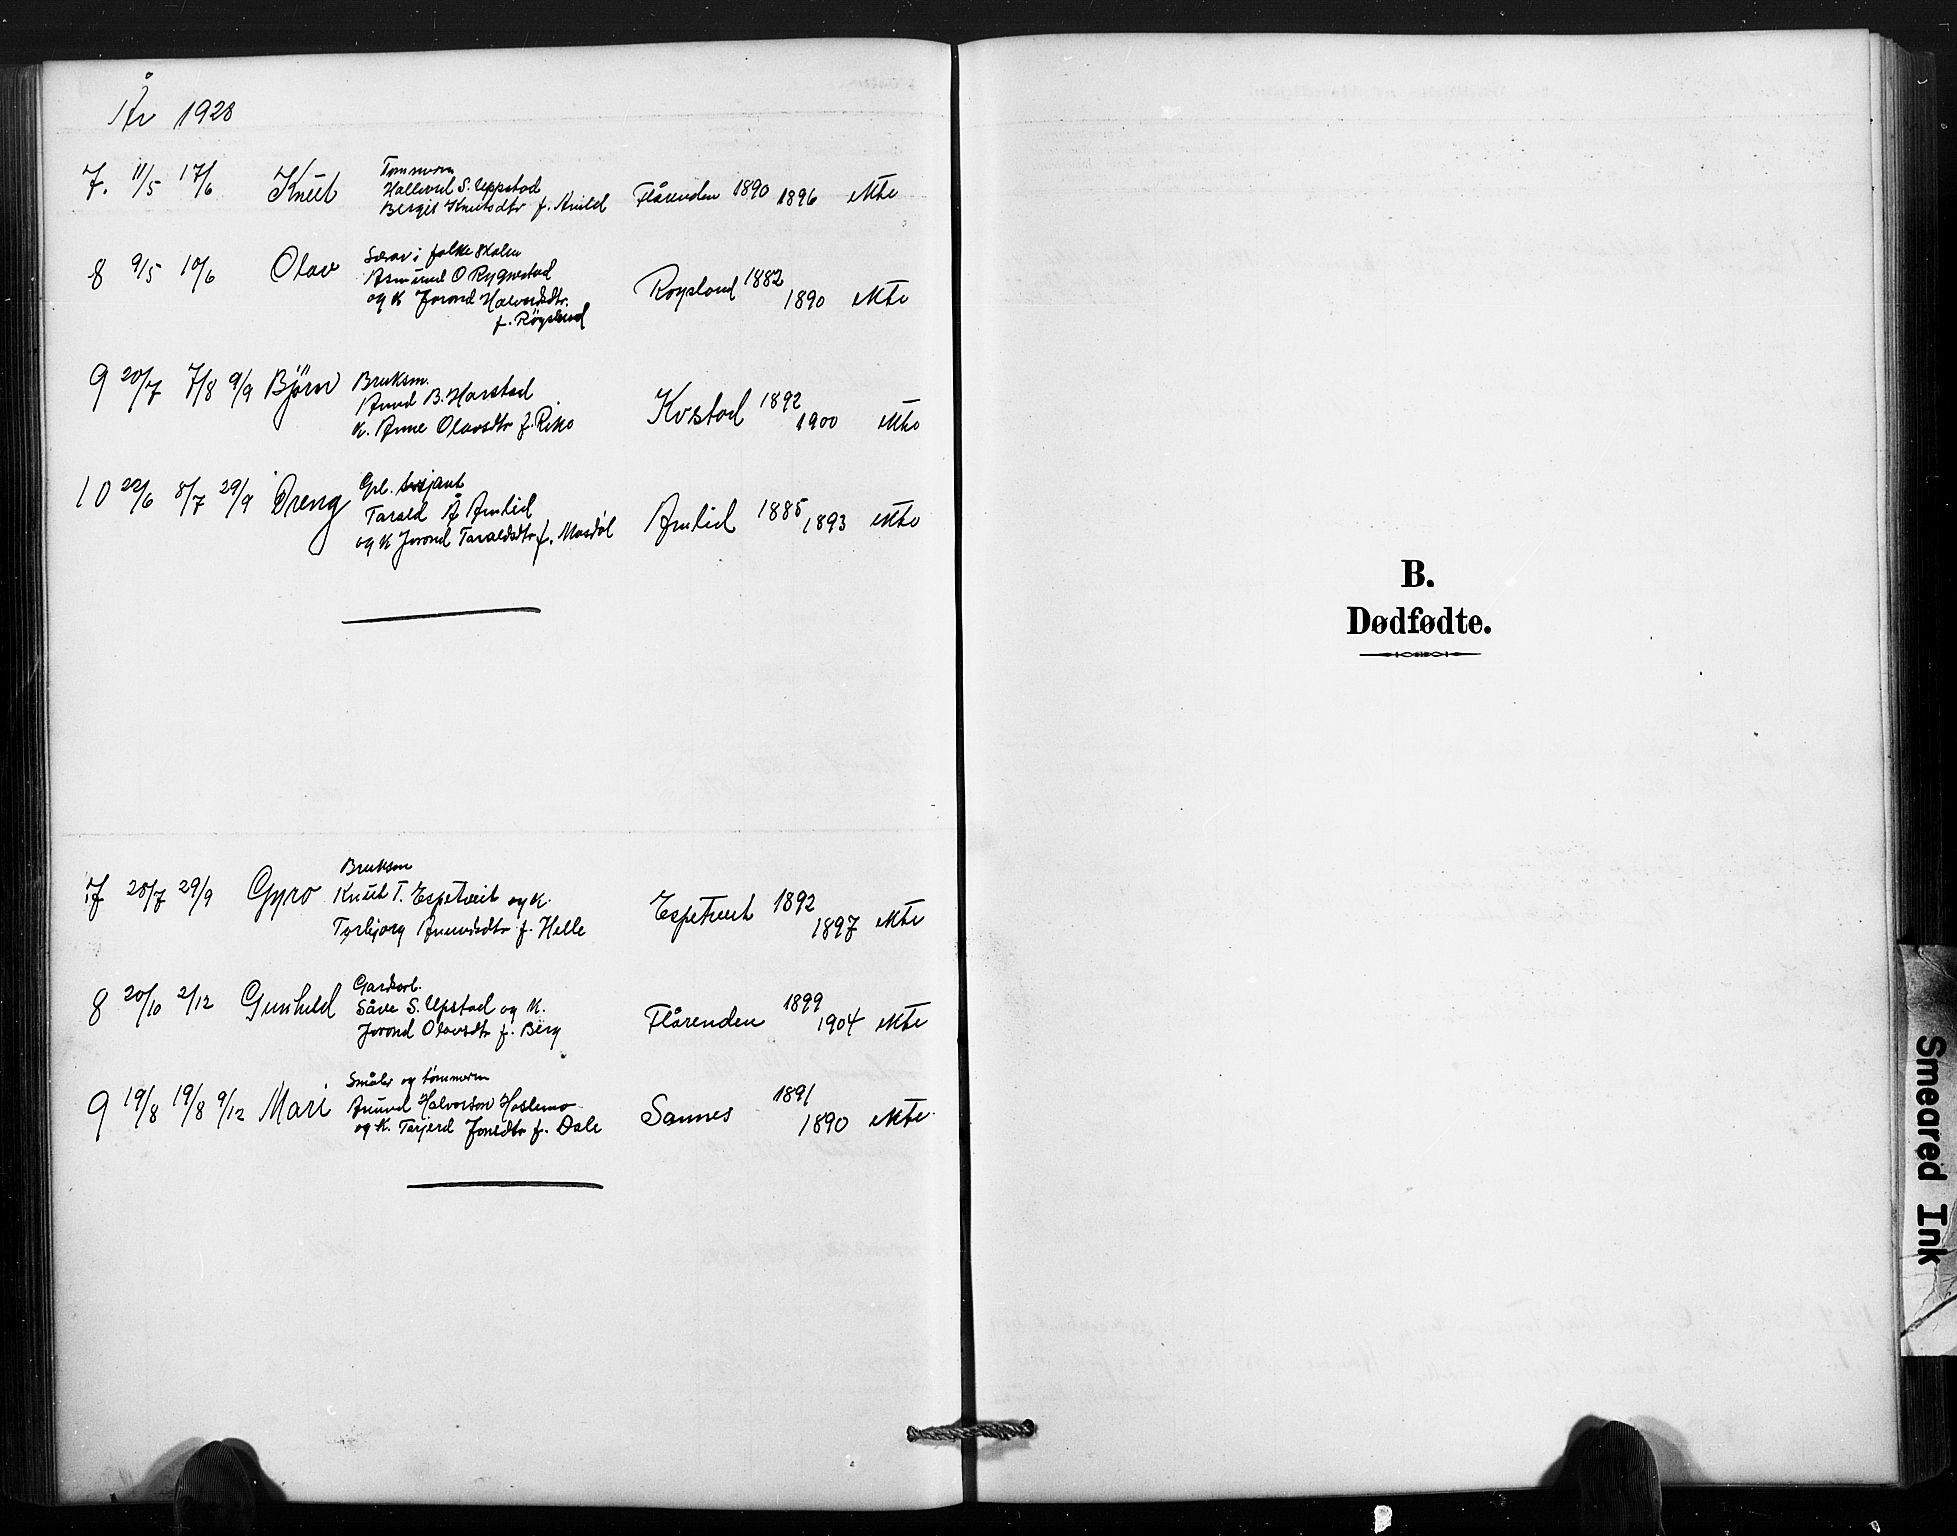 År 1928
7. 11/5 17/6 Knut
Tømmerm
Hallvard S. Uppstad
Bergit Knutsdtr f. Amlid
Flårenden 1890 1896 ekte
8 9/5 10/6 Olav
Lærar i folkeskulen
Asmund O Rygnestad
og k Jorond Halvorsdtr.
f. Røysland
Roysland 1882 1890 ekte
9 20/7 7/8 9/9 Björn
Bruksm.
Anund B. Harstad
k. Anne Olavsdtr f. Riko
Kvstad 1892 1900 ekte
10 22/6 8/7 29/9 Dreng
Gbr. sersjant
Tarald Å Amlid
og k Jorond Taraldsdtr f. Mosdøl
Amlid 1885 1893 ekte
7 28/7 29/9 Gyro
Bruksm
Knut T. Espetveit og k.
Torbjorg Anundsdtr f. Helle
Espetveit 1892 1897 ekte
8 20/10 2/12 Gunhild
Gardsarb.
Såve S. Upstad og k.
Jorond Olavsdtr f. Berg
Flårenden 1899 1904 ekte
9 19/8 19/8 9/12 Mari
Småbr og tømmerm
Anund Halvorson Haslemo
og k. Tarjerd Jonsdtr f. Dale
Sannes 1891 1890 ekte
B.
Dødfødte.
Smeared Ink